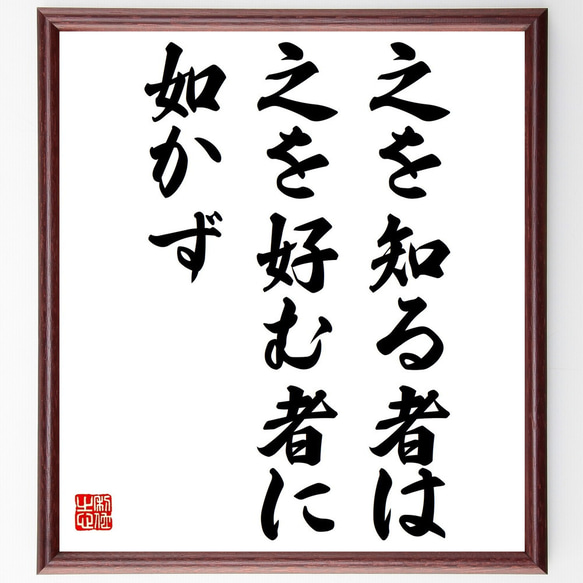 之を知る者は
之を好む者に
如かず